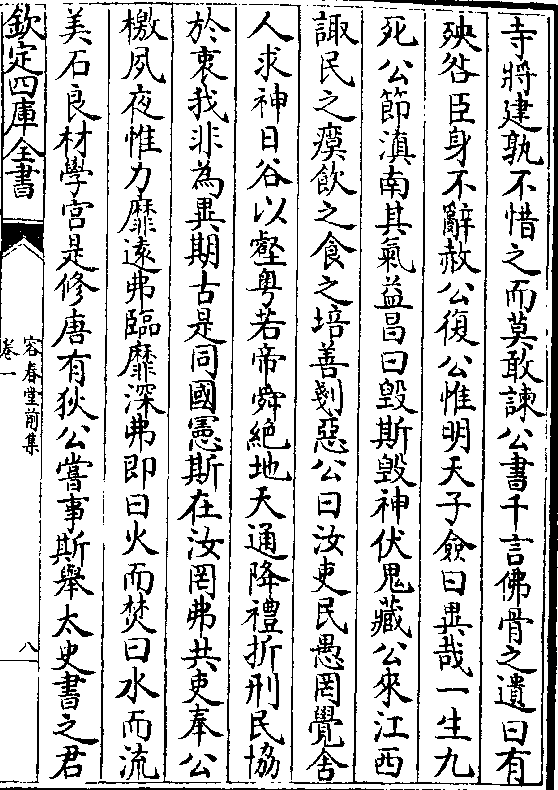 寺將建孰不惜之而莫敢諫公書千言佛骨之遺曰有
殃咎臣身不辭赦公復公惟明天子僉曰異哉一生九
死公節滇南其氣益昌曰毀斯毀神伏鬼藏公來江西
諏民之瘼飲之食之培善剗惡公曰汝吏民愚罔覺舍
人求神日谷以壑粤若帝舜絶地天通降禮折刑民協
於衷我非為異期古是同國憲斯在汝罔弗共吏奉公
檄夙夜惟力靡遠弗臨靡深弗即曰火而焚曰水而流
美石良材學宮是修唐有狄公嘗事斯舉太史書之君
欽定四庫全書
容春堂前集
卷一
八